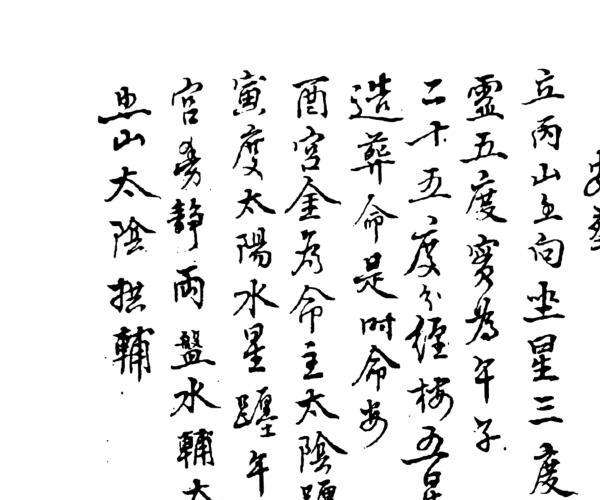 立丙山壬向坐星三度
靈五度實為午子
二十五度分經楼五星
造葬命是時命安
酉宮金為命主太陰躔
寅度太陽水星躔年
宮静両盤水輔太
山太陰拱輔